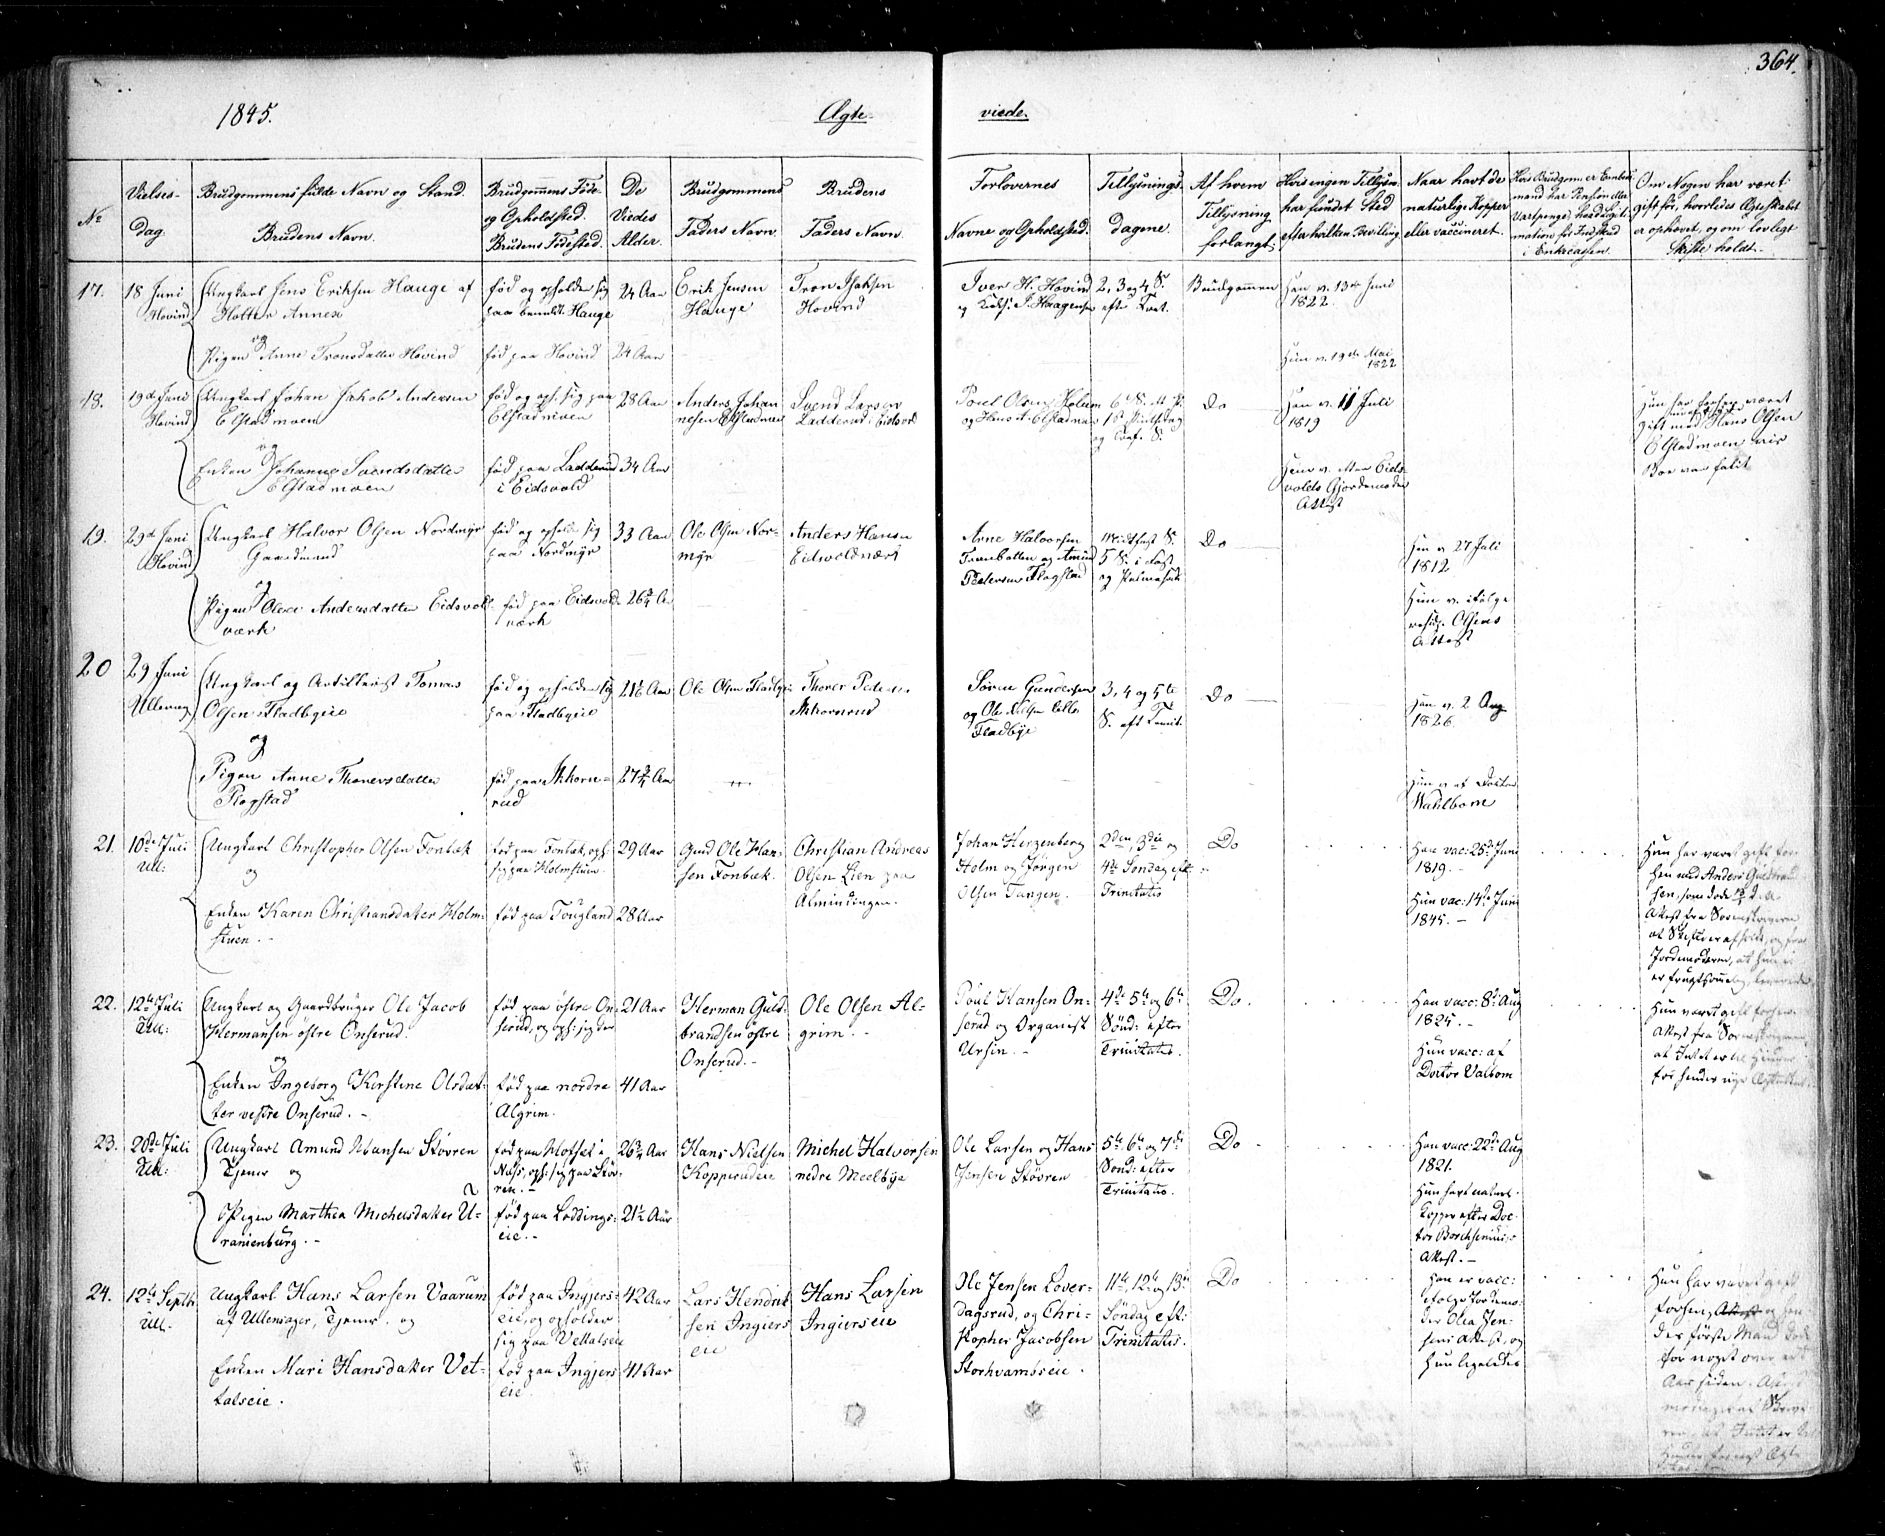 364.
1845.
Ægte-
viede.
No
Vielses-
dag.
Brudgommens fulde Navn og Stand.
Brudens Navn.
Brudgommens Føde-
og Opholdsted.
Brudens Fødested.
De
Viedes
Alder.
Brudgommens
Faders Navn.
Brudens
Faders Navn.
Forlovernes
Navne og Opholdsted.
Tillysnings-
dagene.
Af hvem
Tillysning
forlangt.
Hvis ingen Tillysn.
har fundet Sted
efter hvilken Bevilling
Naar havt de
naturlige Kopper
eller vaccineret.
Hvis Brudgom. er Embeds
mand har Pension eller
Vartpenge, hvad Legiti-
mation for Indskud
i Enkecassen.
Om Nogen har været
gift før, hvorledes Ægteskabet
er ophævet, og om lovligt
Skifte holdt.
17.
18 Juni
Hovind
Ungkarl Jens Eriksen Hauge af
Holter Annex
og
Pigen Anne Tronsdatter Hovind
fød og opholder sig
paa bemeldt Hauge
fød paa Hovind
24 Aar
24 Aar
Erik Jensen
Hauge
Tron Isaksen
Hovind
Iver H. Hovind
og Kirks. J. Haagensen
2, 3 og 4 S.
efter Tret.
Brudgommen
Han v. 13de Juni
1822.
Hun v. 19de Mai
1822
18.
19de Juni
Hovind
Ungkarl Johan Jakob Andersen
Elstadmoen
og
Enken Johanne Svendsdatter
Elstadmoen
fød og oph. sig paa
Elstadmoen
fød paa Ladderud
i Eidsvold
28 Aar
34 Aar
Anders Johan
nesen Elstadmoen
Svend Larsen
Ladderud i Eidsvold
Poul Olsen Holum
og Hans A. Elstadmoen
Do
Han v. 11 Juli
1819
Hun v. efter Eids-
volds Gjordemoder
Attest
Hun har forhen været
gift med Hans Olsen
Elstadmoen hvis
Boe var falit
19.
29de Juni
Hovind
Ungkarl Halvor Olsen Nordmyr
Gaardmand
og
Pigen Olea Andersdatter Eidsvold
værk
fød og opholder sig
paa Nordmyr
fød paa Eidsvold
værk
33 Aar
26¾ Aar
Ole Olsen Nor-
myr
Anders Hansen
Eidsvoldværk
Arne Halvorsen
Tranbotten og Amund
Pedersen Flogstad
Midfast S.
5 S. i Fast
og Palmesønd
Do
Han v. 27 Juli
1812
Hun v. ifølge
Olsens
Attest
20
29 Juni
Ullensag
Ungkarl og Artillerist Tomas
Olsen Fladbyeie
og
Pigen Anne Thoversdatter
Flogstad
fød og opholder sig
paa Fladbyeie
fød paa Akkorn-
rud
27¾ Aar
Ole Olsen Fladbyeie
Thover Pedersen
Akkornrud
Søren Gundersen
og Ole Nielsen lille
Fladbye
3, 4 og 5te
S. eft Trinit.
Do
Han v. 2 Aug
1826
Hun v. af Doctor
Wahlbom
21.
10de Juli
Ull:
Ungkarl Christopher Olsen Fonbæk
og
Enken Karen Christiansdatter Holm-
stuen. -
fød paa Fonbæk, oph.
sig paa Holmstuen.
fød paa Tougland
29 Aar
28 Aar
Gmd Ole Han-
sen Fonbæk.
Christian Andreas
Olsen Lien paa
Almindingen.
Johan Herzenberg
Holm og Jørgen
Olsen Tangen.
2den, 3die og
4de Søndag eft:
Trinitatis
Do
Han vac: 25de Juni
1819. -
Hun vac: 14de Juni
1845. -
Hun har været gift for-
hen med Anders Gulbrand-
sen, som døde
Attest fra Sorenskriveren
at Skifte er afholdt, og fra
Jordemoderen, at hun ei
er frugtsommelig, leverede
22.
12te Juli
Ull:
Ungkarl og Gaardbruger Ole Jacob
Hermansen østre Onserud.
og
Enken Ingeborg Kirstine Olsdat-
ter vestre Onserud. -
fød paa østre On-
serud, og oph: sig der
fød paa nordre
Algrim.
21 Aar
41 Aar
Herman Guld-
brandsen østre
Onserud. -
Ole Olsen Al-
grim. -
Poul Hansen On-
serud og Organist
Ursin. -
4de 5te og 6te
Sønd: efter
Trinitatis.
Do.
Han vacc: 8de Aug
1825. -
Hun vacc: af
Doctor Valbom
Hun været gift forhen.
Attest fra Sorenskriveren
at Intet er til Hinder
for hendes nye Ægteskab.
23.
20de Juli
Ull:
Ungkarl Amund Hansen Støvren
Tjener og
Pigen Marthea Michelsdatter U-
ranienburg. -
fød paa Mofset i
Næss, oph: sig paa Støv-
ren. -
fød paa Løddings-
eie. -
26¾ Aar
21½ Aar
Hans Nielsen
Kopperudeie
Michel Halvorsen
nedre Meelbye
Ole Larsen og Hans
Jensen Støvren
5te 6te og 7de
Sønd: efter
Trinitatis.
Do
Han vacc: 22de Aug
1821.
Hun havt naturl.
Kopper efter Doc-
tor Borchsenius's
Attest. -
24.
12te Septbr
Ull.
Ungkarl Hans Larsen Vaarum
af Ullensager, Tjener. og
Enken Mari Hansdatter Vet-
talseie.
fød paa Ingjers-
eie, og opholder
sig paa Vettalseie
fød paa Ingjers-
eie.
42 Aar
41 Aar
Lars Hendrik
sen Ingiers
eie
Hans Larsen
Ingierseie
Ole Jensen Løver-
dagsrud, og Chri-
stopher Jacobsen
Storhvamsseie.
11te, 12te og 13de
Søndag eft:
Trinitatis.
Do
Han er vacc:
ifølge Jordemo-
der Olea Jen-
sens Attest, og
Hun ligeledes
Hun har været gift
forhen, og hen-
des første Mand døde
for noget over et
Aar siden.